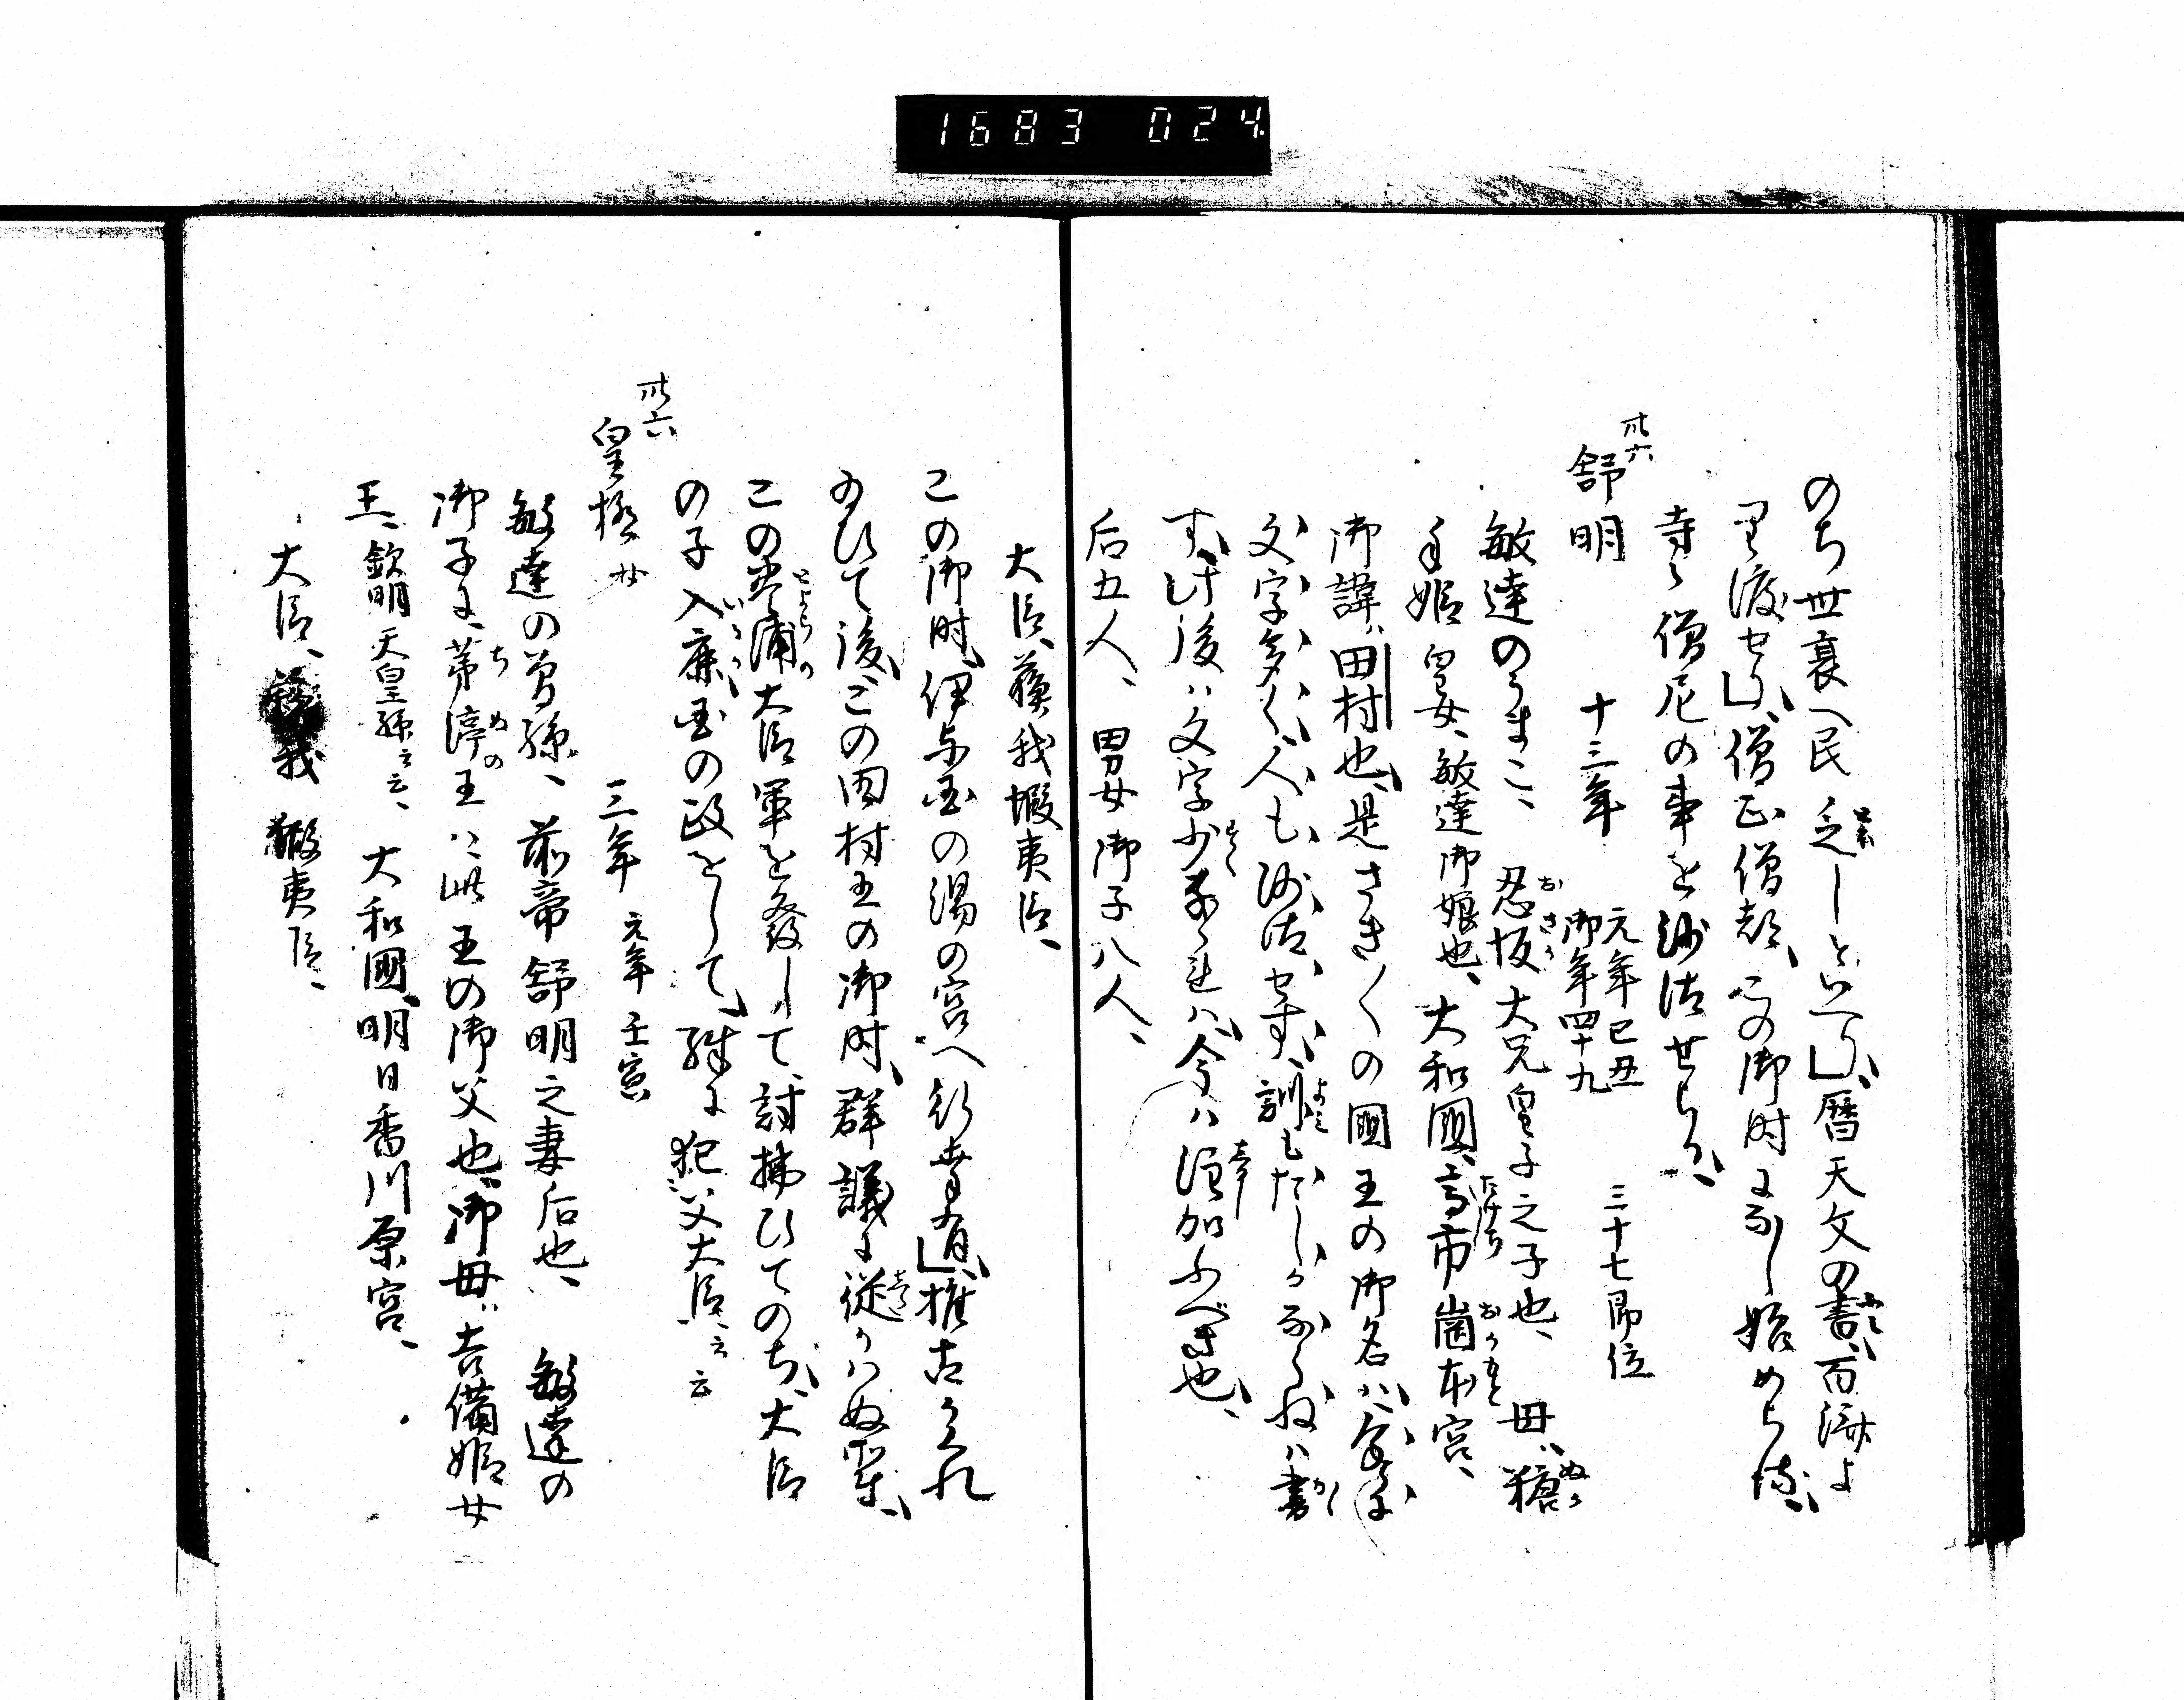 1683 024
のち世衰へ民乏しといへり、暦天文の書、百済よ
り渡せり、僧正僧都、この御時よりし始めらる、
寺々僧尼の事を沙汰せらる、
卅六
舒明　十三年　元年己丑　三十七即位
御年四十九
敏達のうまこ、忍坂大兄皇子之子也、母ハ糠
手姫皇女、敏達御娘也、大和國高市崗本宮、
御諱ハ田村也、是さき〳〵の國王の御名ハ
文字多く、人も沙汰せず、訓もたしかならねハ書
す、此後ハ文字少なけれハ、今ハ注加ふべき也、
后五人、男女御子八人、
大臣、蘓我蝦夷臣、
この御時、伊与国の湯の宮へ行幸有、推古かくれ
給ひて後、この田村王の御時、群議に従ハぬ輩、
この豊浦大臣軍を發して、討拂ひてのち、大臣
の子入鹿、国の政をして、殊に犯父大臣云云
卅六
皇極 女　三年　元年壬寅
敏達の曽孫、前帝舒明之妻后也、敏達の
御子に、茅渟王ハ此王の御父也、御母ハ吉備姫女
王、欽明天皇孫云云、大和國、明日香川原宮、
大臣、蘓我蝦夷臣、